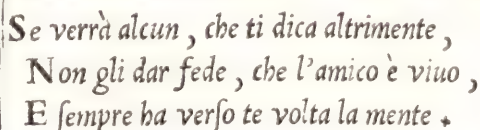 Se verrà alcun , che ti dica altrimente ,
Non gli dar fede , che l'amico è viuo ,
E ſempre ha verſo te volta la mente .